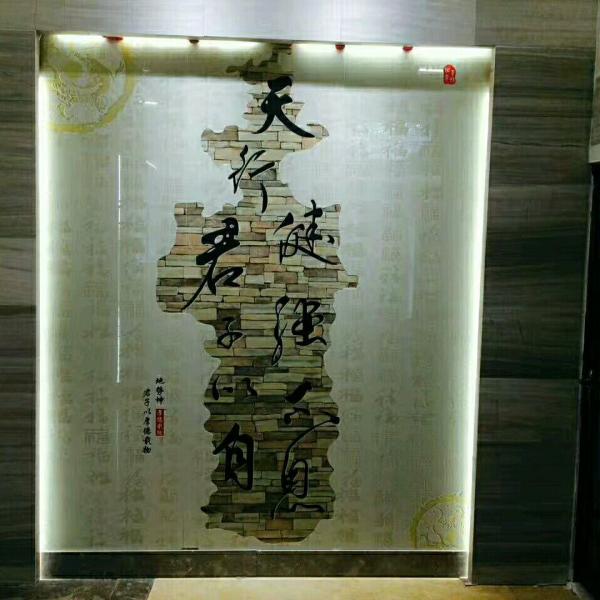 天行健
君子以自
强不息
地势坤
君子以厚德载物
厚德载物